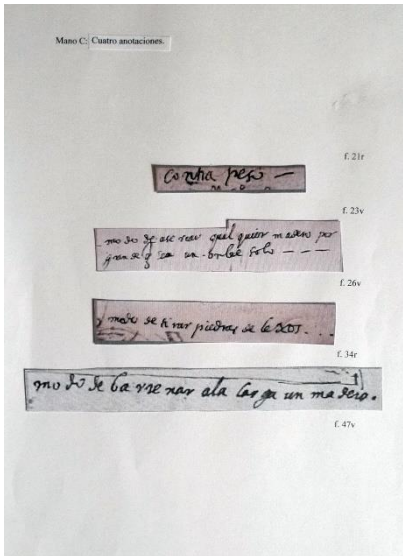 Mano C: Cuatro anotaciones.
f. 21r
Contra peso —
f. 23v
modo de ase rrar qual quier madero por
grande q sea un onbre solo — — —
f. 26v
modo de ti rar piedras de leXos . . .
f. 34r
modo de barre nar ala larga un madero.
f. 47v